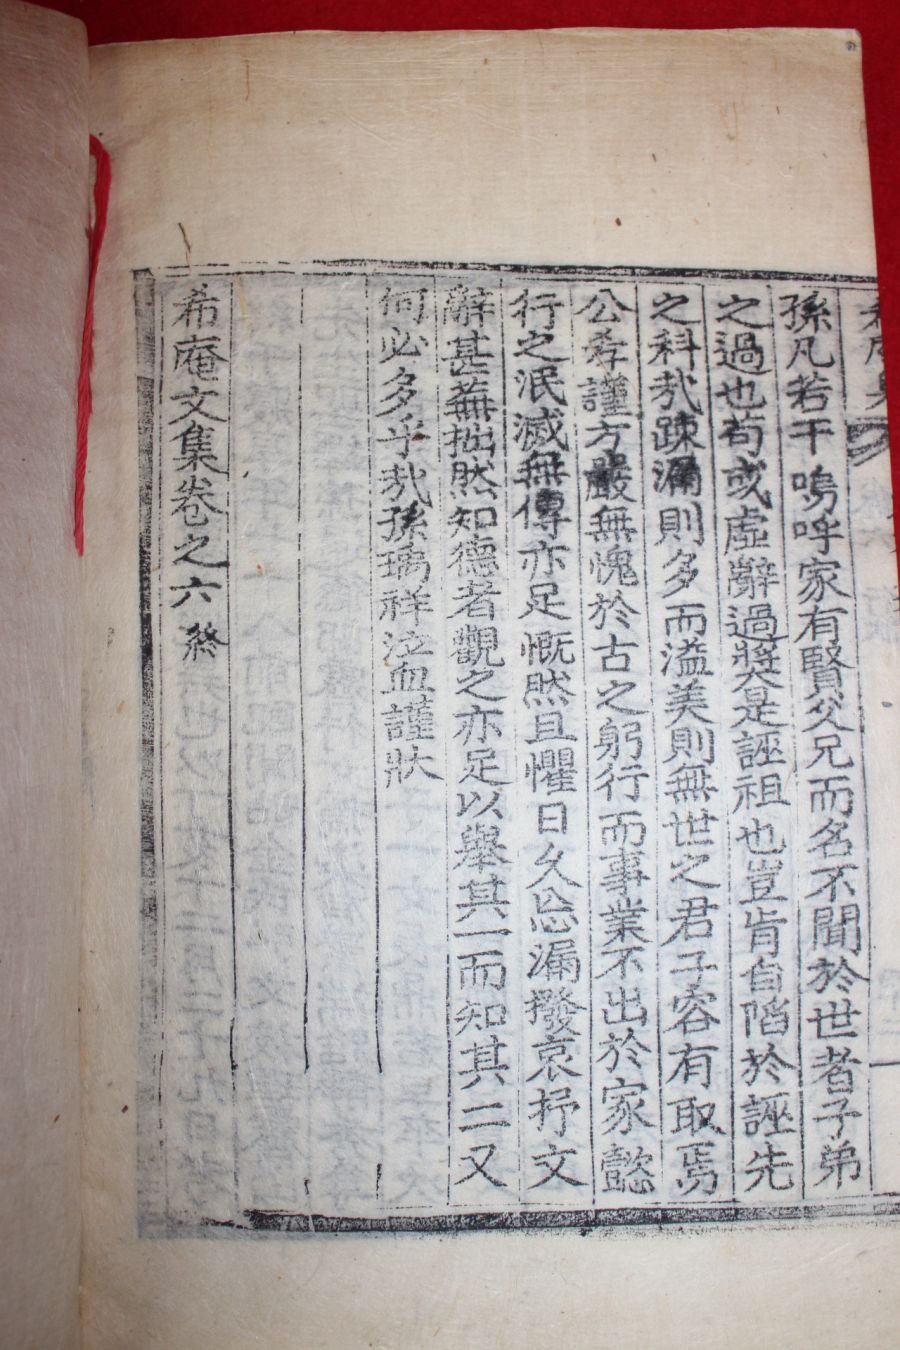 孫凡若干嗚呼家有賢父兄而名不聞於世者子弟
之過也苟或虛辭過奬是誣祖也豈肯自陷於誣先
之科哉踈漏則多而溢美則無世之君子容有取焉
公孝謹方嚴無愧於古之躬行而事業不出於家懿
行之泯滅無傳亦足慨然且懼日久忘漏撥哀抒文
辭甚蕪拙然知德者觀之亦足以舉其一而知其二又
何必多乎哉孫瑀祥泣血謹狀
希庵文集卷之六終